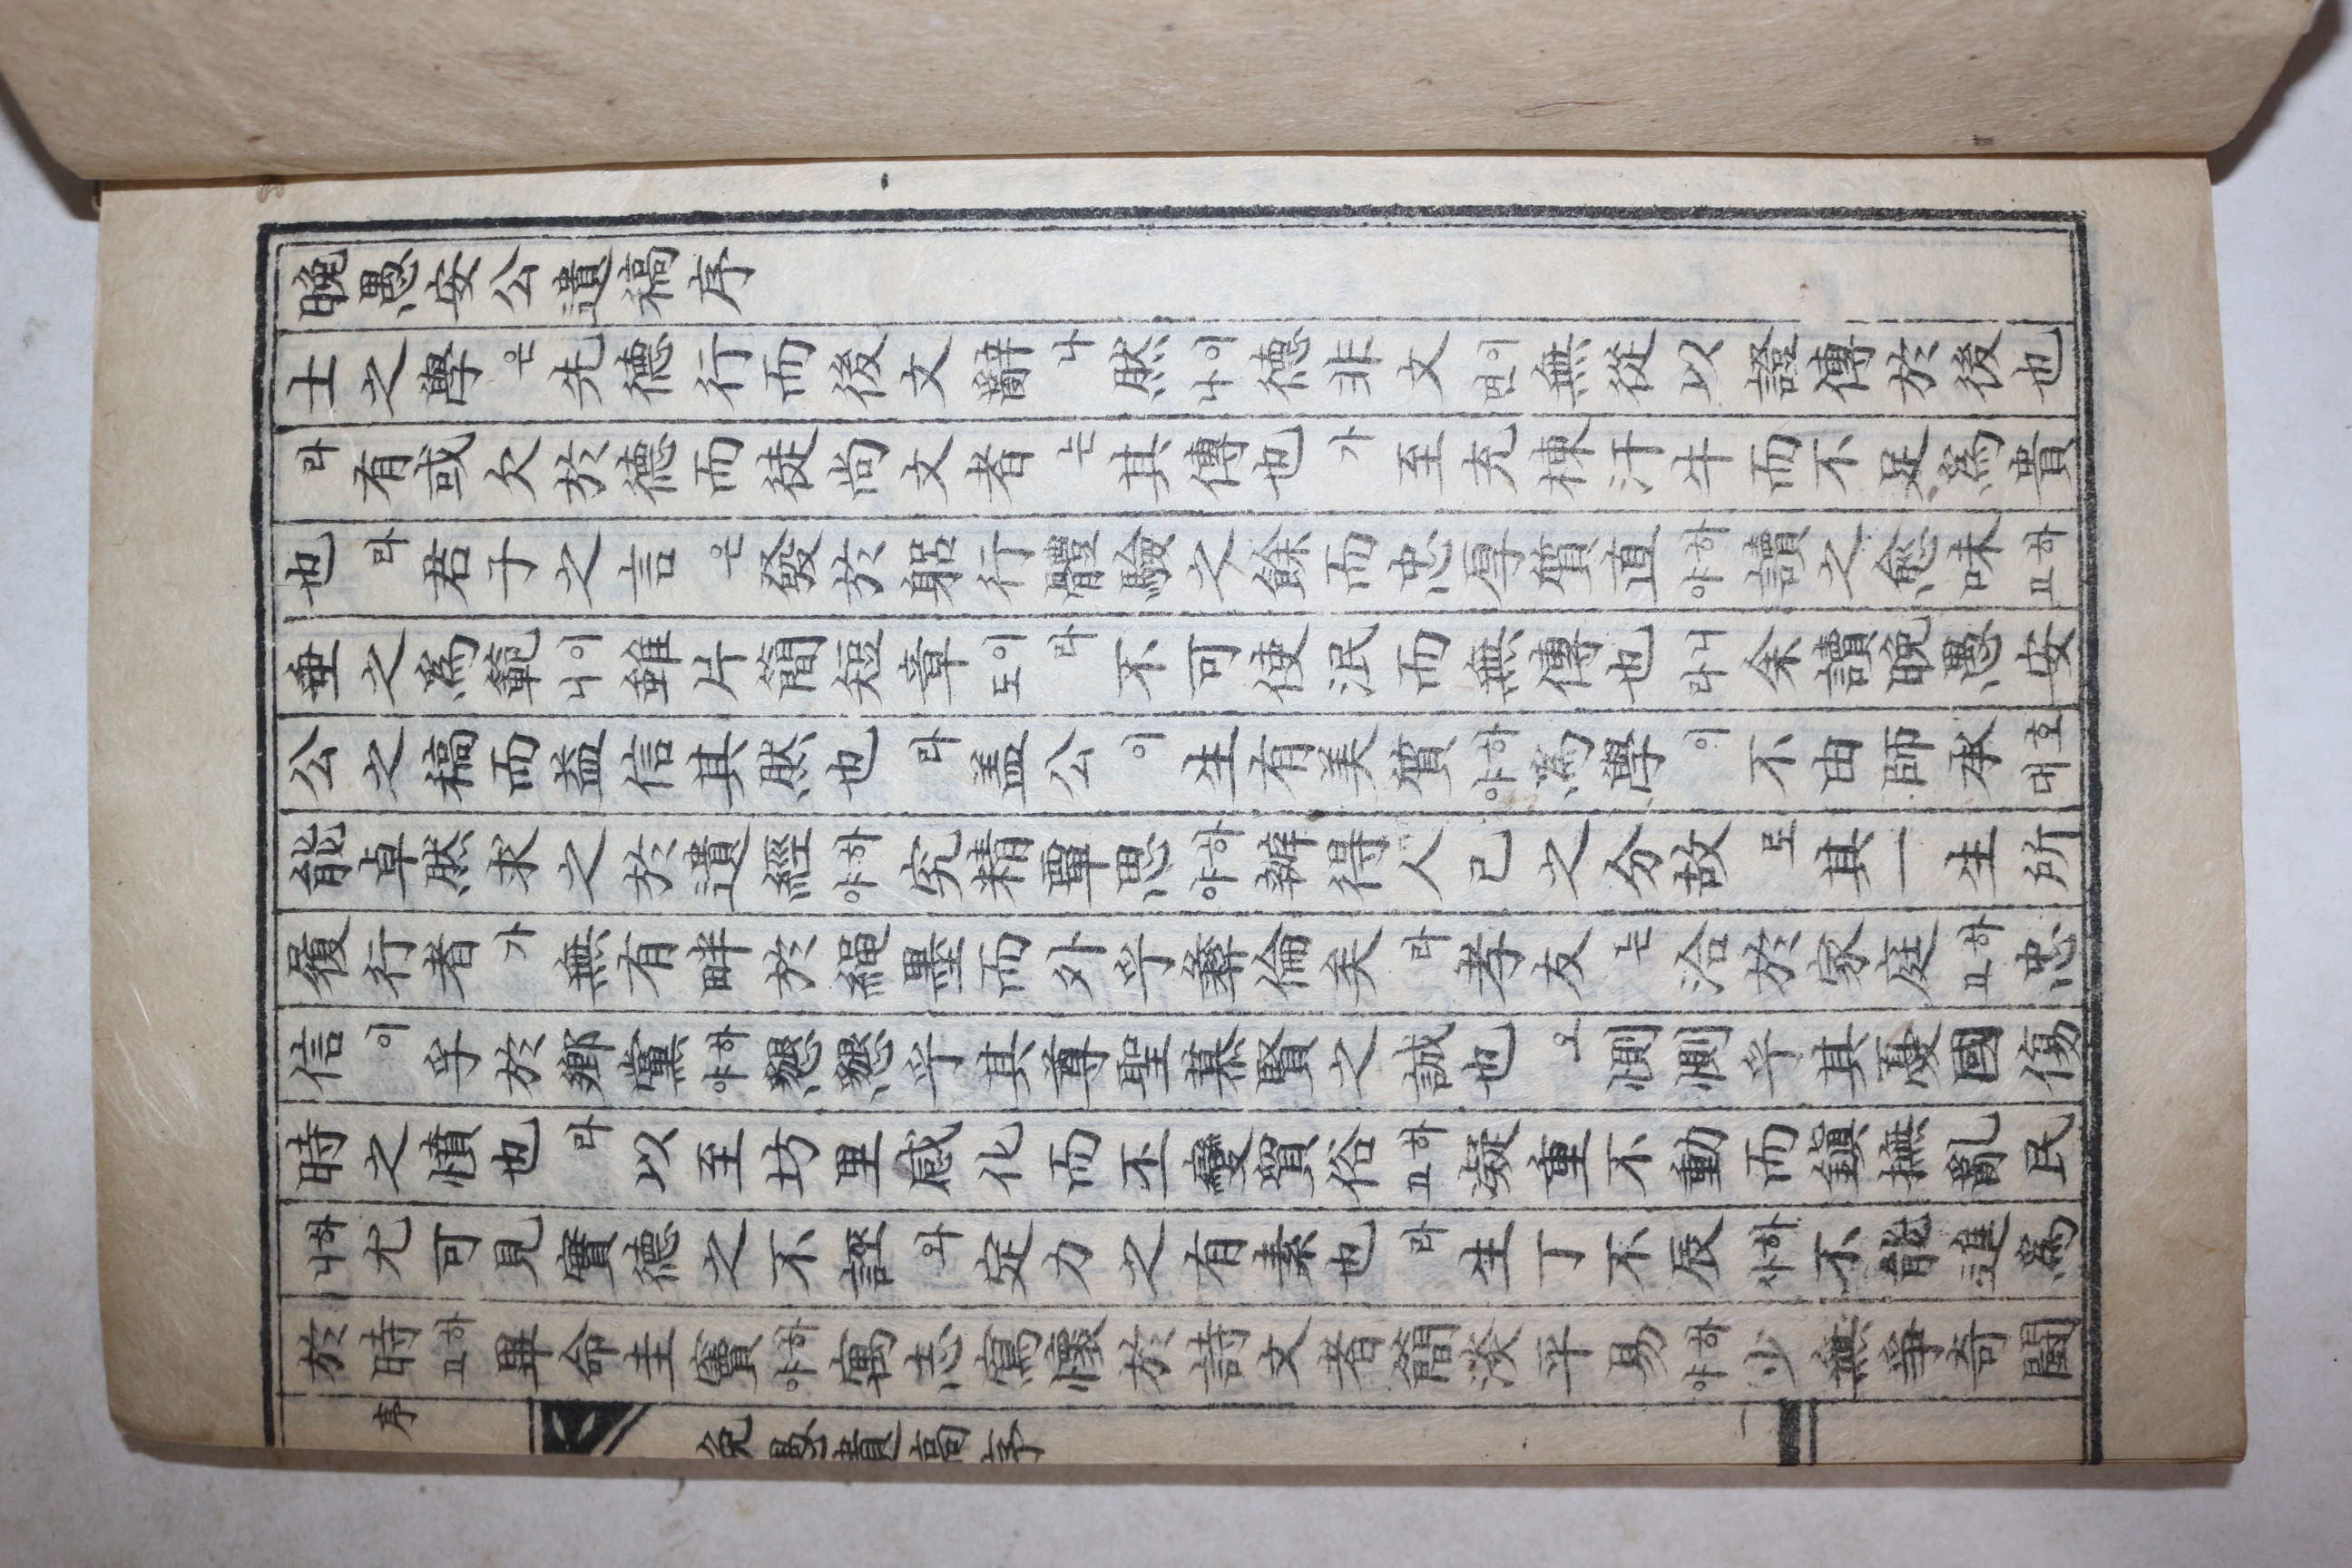 晩愚安公遺稿序
士之學은先德行而後文辭나然이나德非文이면無從以證傳於後也
라有或欠於德而徒尚文者는其傳也가至充棟汗牛而不足爲貴
也라君子之言은發於躬行體驗之餘而忠厚質直하야讀之愈味하고
垂之爲範이니雖片簡短章이도라不可使泯而無傳也라니余讀晩愚安
公之稿而益信其然也라盖公이生有美質하야爲學이不由師承호대
能卓然求之於遺經하야究精覃思하야辦得人己之分故로其一生所
履行者가無有畔於繩墨而外乎彝倫矣라孝友는洽於家庭하고忠
信이孚於鄕黨하야懇懇乎其尊聖慕賢之誠也오惻惻乎其憂國傷
時之憤也라以至坊里感化而丕變貿俗하고凝重不動而鎭撫亂民
하니尤可見實德之不誣와定力之有素也라生丁不辰하사不能進爲
於時하고畢命圭竇하야寓志寫懷於詩文者簡淡平易하야少無爭奇鬪
序
晩愚遺稿序
一